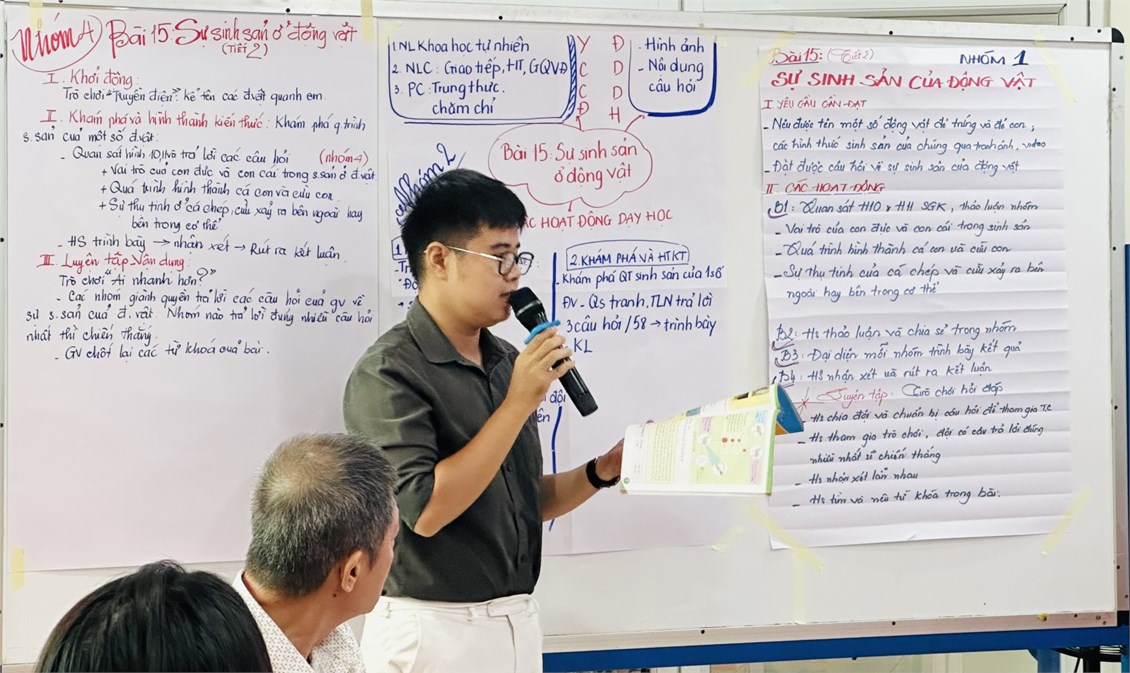 Nhóm 4
Bài 15: Sự sinh sản ở động vật
(Tiết 2)
I. Khởi động:
Trò chơi "Truyền điện": kể tên các đvật quanh em.
II. Khám phá và hình thành kiến thức: Khám phá q.trình
s.sản của một số đ.vật:
- Quan sát hình 10,11 và trả lời các câu hỏi (nhóm 4)
+ Vai trò của con đực và con cái trong s.sản ở đ.vật
+ Quá trình hình thành cá con và cừu con.
+ Sự thụ tinh ở cá chép, cừu xảy ra bên ngoài hay
bên trong cơ thể
- HS trình bày → nhận xét → Rút ra kết luận.
III. Luyện tập Vận dụng:
Trò chơi "Ai nhanh hơn?"
- Các nhóm giành quyền trả lời các câu hỏi của gv về
sự s.sản của đ.vật. Nhóm nào trả lời đúng nhiều câu hỏi
nhất thì chiến thắng.
- GV chốt lại các từ khóa của bài.
1. NL Khoa học tự nhiên
2. NLC: Giao tiếp, HT, GQVĐ
3. PC: Trung thực.
chăm chỉ
Y C C Đ
Đ D D H
- Hình ảnh
- Nội dung
câu hỏi
Nhóm 2
Bài 15: Sự sinh sản
ở động vật
CÁC HOẠT ĐỘNG DẠY HỌC
1.
2. KHÁM PHÁ VÀ HTKT
- Khám phá QT sinh sản của 1 số
ĐV - Qs tranh, TLN trả lời
3 câu hỏi /58 → trình bày
KL
đội
Bài 15: (Tiết 2) NHÓM 1
SỰ SINH SẢN CỦA ĐỘNG VẬT
I YÊU CẦU CẦN ĐẠT
- Nêu được tên một số động vật đẻ trứng và đẻ con,
các hình thức sinh sản của chúng qua tranh ảnh, video
- Đặt được câu hỏi về sự sinh sản của động vật
II CÁC HOẠT ĐỘNG
B1: Quan sát H10 & H11 SGK, thảo luận nhóm
- Vai trò của con đực và con cái trong sinh sản
- Quá trình hình thành cá con và cừu con
- Sự thụ tinh của cá chép và cừu xảy ra bên
ngoài hay bên trong cơ thể
B2: Hs thảo luận và chia sẻ trong nhóm
B3: Đại diện mỗi nhóm trình bày kết quả
B4: HS nhận xét và rút ra kết luận
* Luyện tập: Trò chơi hỏi đáp
- Hs chia đội và chuẩn bị câu hỏi để tham gia TC
- Hs tham gia trò chơi, đội có câu trả lời đúng
nhiều nhất sẽ chiến thắng
- Hs nhận xét lẫn nhau
- Hs tìm và nêu từ khóa trong bài.